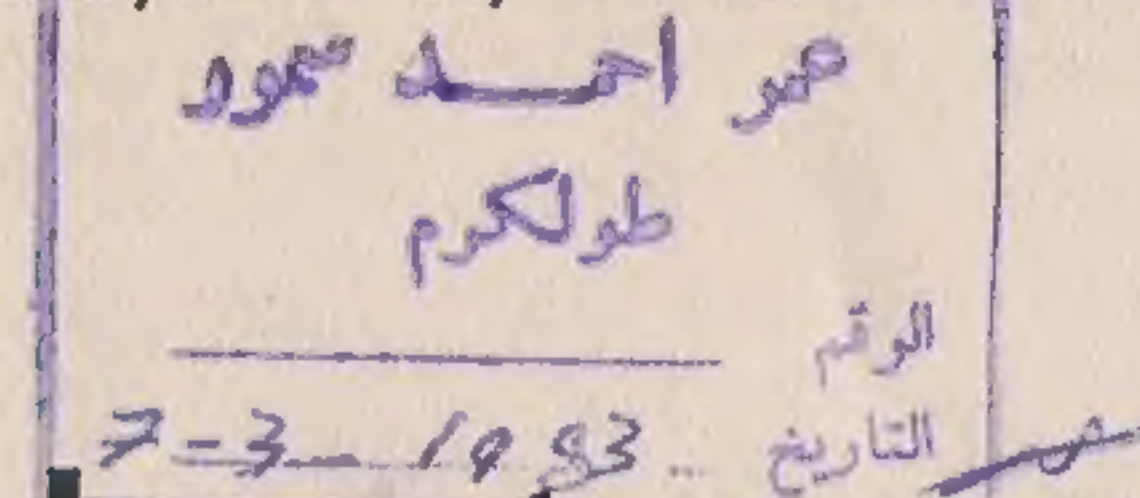 عمر احمد حمود
طولكرم
الرقم
التاريخ 7-3-1953